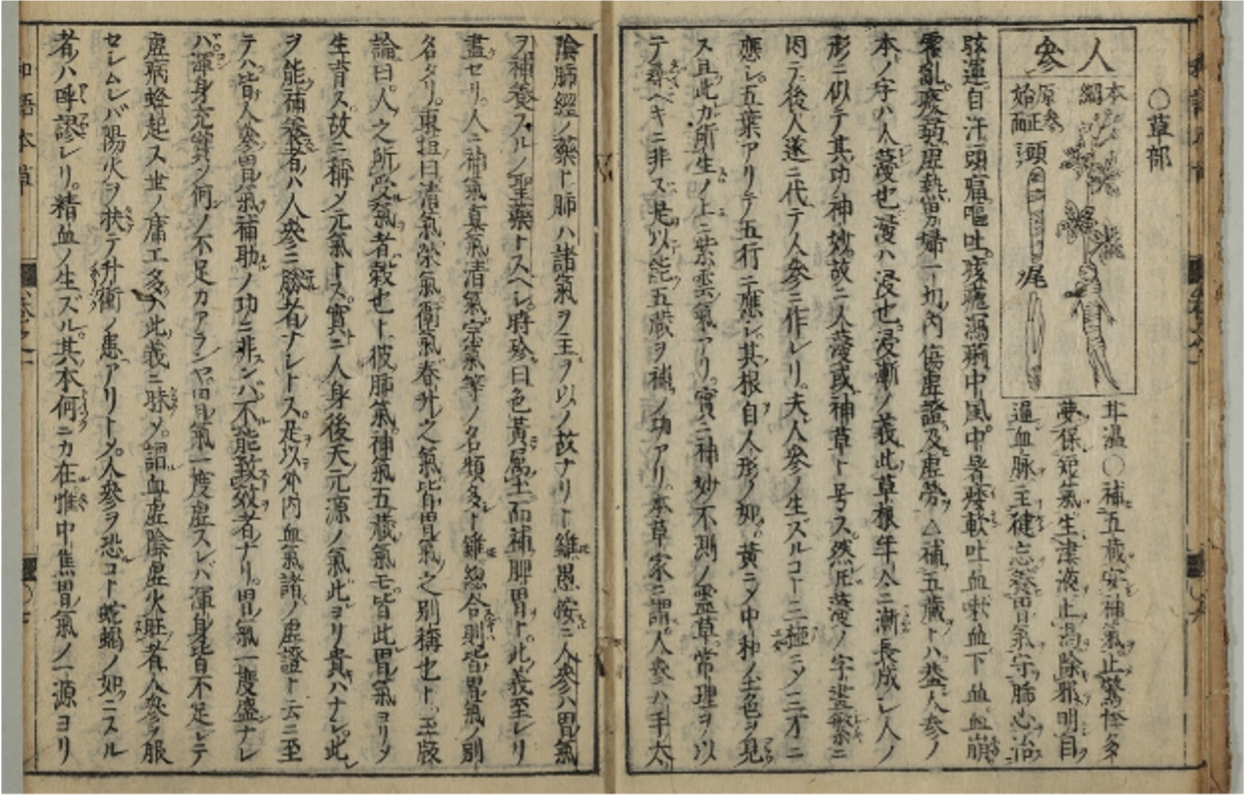 ○草部
人參
本綱
頭
尾
甘温○補五藏安神氣止驚悸多
夢保短氣生津液止渇除邪明目
通血脉主健忘發胃氣守肺心治
咳運自汗頭痛嘔吐痎瘧瀉痢中風中暑痿軟吐血嗽血下血血崩
霍亂虚熱婦一切内傷虚證及虚勞△補五藏トハ益人參ノ
本ノ字ハ人薓也薓ハ浸也浸漸ノ義此草根年々ニ漸長成レ人ノ
形ニ似テ其功神妙故ニ人薓或神草ト号ス然圧薓ノ字畫繁ニ
因テ後人遂ニ代テ人參ニ作レリ夫人參ノ生ズルコト三極ニメ三才ニ
應シ五葉アリテ五行ニ應シ其根自人形ノ如黄ニメ中和ノ土色ヲ見
ス且此カ所生ノ上ニ紫雲氣アリ實ニ神妙不測ノ靈草常理ヲ以
テ尋ベキニ非ス是以能五藏ヲ補ノ功アリ本草家ニ謂人參ハ手太
陰肺經ノ藥ト肺ハ諸氣ヲ主ヲ以ノ故ナリト雖愚按ニ人參ハ胃氣
ヲ補養スルノ聖藥トスヘシ時珍曰色黄属土而補脾胃ト此義至レリ
盡セリ人ニ神氣真氣清氣宗氣等ノ名類多ト雖總合則皆胃氣ノ別
名タリ東垣曰清氣榮氣衛氣春升之氣皆胃氣之別稱也ト至哉
論曰人之所受氣者穀也ト彼肺氣神氣五藏氣モ皆此胃氣ヨリメ
生育ス故ニ稱メ元氣トス實ニ人身後天元源ノ氣此ヨリ貴ハナシ此
ヲ能補養者ハ人參ニ勝者ナシトス是以外内血氣諸ノ虚證ト云ニ至
テハ皆人參胃氣補助ノ功ニ非ンバ不能致效者ナリ胃氣一度盛ナレ
ハ渾身充實メ何ノ不足カアランヤ胃氣一度虚スレバ渾身皆不足シテ
虚病蜂起ス世ノ庸工多ハ此義ニ昧メ謂血虚陰虚火旺者人參ヲ服
セシムレバ陽火ヲ扶テ升衝ノ患アリトメ人參ヲ恐コト蛇蝎ノ如ニスル
者ハ呼謬レリ精血ノ生ズル其本何ニカ在惟中焦胃氣ノ一源ヨリ